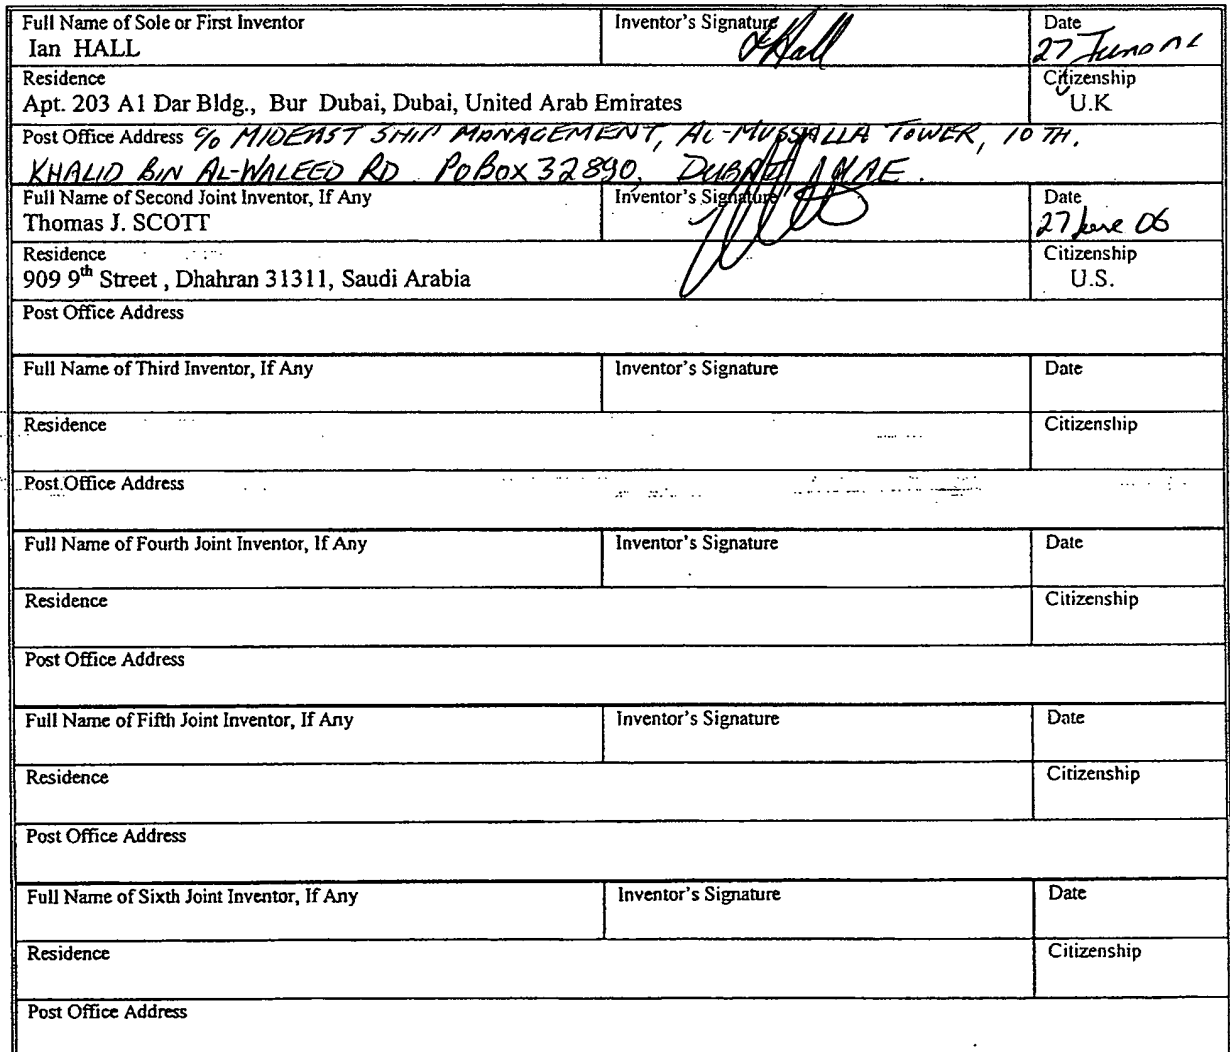 Full Name of Sole or First Inventor Inventor's Signature Date
Ian HALL I Hall 27 June 06
Residence Citizenship
Apt. 203 A1 Dar Bldg., Bur Dubai, Dubai, United Arab Emirates U.K
Post Office Address c/o MIDEAST SHIP MANAGEMENT, AL-MUSSALLA TOWER, 10 TH.
KHALID BIN AL-WALEED RD PO BOX 32890, DUBAI, UAE.
Full Name of Second Joint Inventor, If Any Inventor's Signature Date
Thomas J. SCOTT 27 June 06
Residence Citizenship
909 9th Street , Dhahran 31311, Saudi Arabia U.S.
Post Office Address
Full Name of Third Inventor, If Any Inventor's Signature Date
Residence Citizenship
Post Office Address
Full Name of Fourth Joint Inventor, If Any Inventor's Signature Date
Residence Citizenship
Post Office Address
Full Name of Fifth Joint Inventor, If Any Inventor's Signature Date
Residence Citizenship
Post Office Address
Full Name of Sixth Joint Inventor, If Any Inventor's Signature Date
Residence Citizenship
Post Office Address